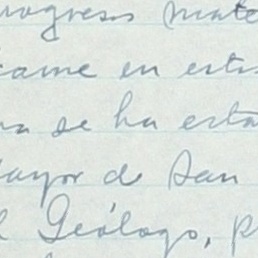 rogreso mate
came en estos
ra se ha esta
ayor de San
l Geólogo, p